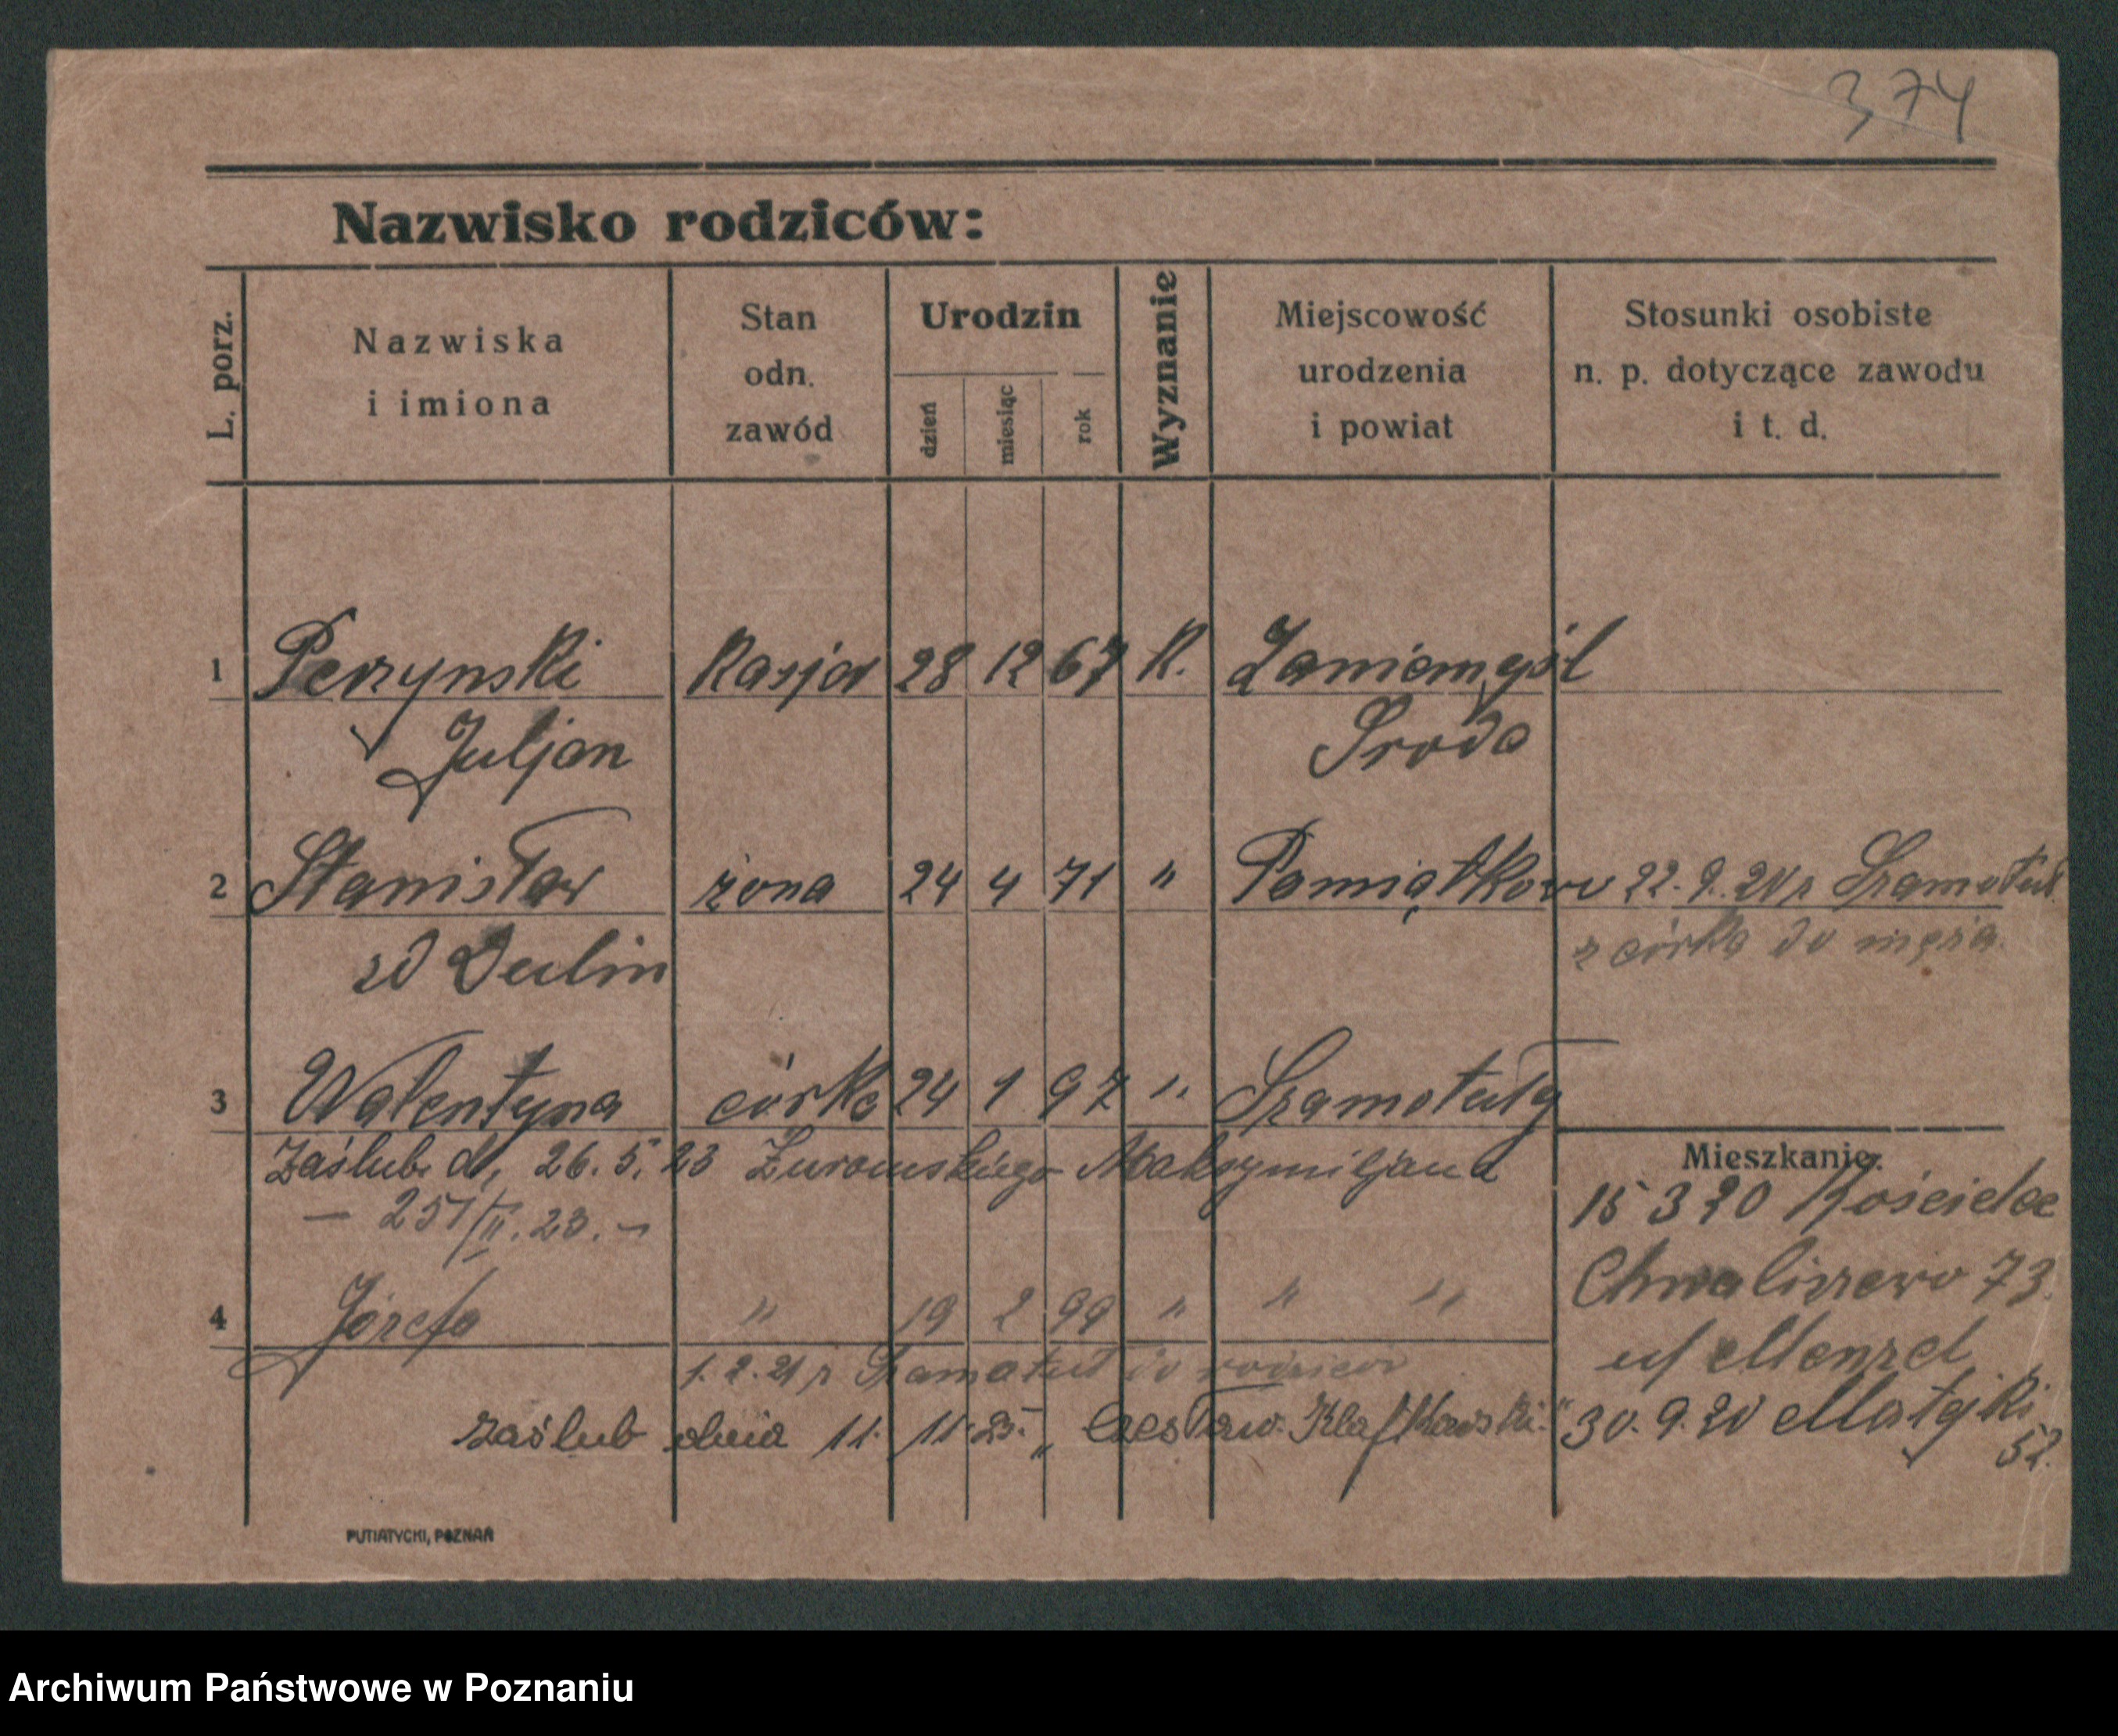 374
Nazwisko rodziców:
L. porz.
Nazwiska
i imiona
Stan
odn.
zawód
Urodzin
dzień
miesiąc
rok
Wyznanie
Miejscowość
urodzenia
i powiat
Stosunki osobiste
n. p. dotyczące zawodu
i t. d.
1 Perzynski 28 12 67 K. Zaniemyśl
Juljan Sroda
2 Stanisław żona 24 4 71 " Pamiątkowo 22. 9. 20 r Szamotuł
Dulin z córką do męża
3 Walentyna córka 24 1 97 " Szamotuły
Zaślub. d, 26. 5. 23 Żurowskiego Maksymiljana
Mieszkanie:
15 3 20
— 251/II. 23. —
Chwaliszewo 73.
4 Józefa " 19 2 99 " " "
u/ Menzel
1. 2. 21 r Szamotuł do rodziców
zaślub dnia 11. 11. 25. „Czesław. Klafkowski."
30. 9. 20 Matejki
52.
PUTIATYCKI, POZNAŃ
Archiwum Państwowe w Poznaniu